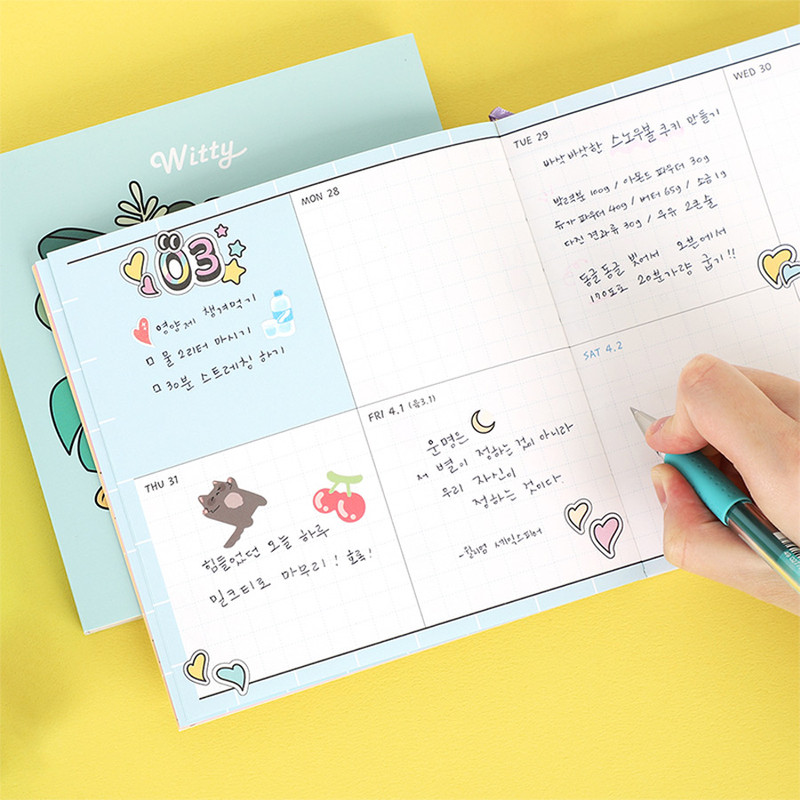 Witty
03
영양제 챙겨먹기
물 2리터 마시기
30분 스트레칭 하기
MON 28
TUE 29
바삭바삭한 스노우볼 쿠키 만들기
박력분 100g / 아몬드 파우더 30g
슈가 파우더 40g / 버터 65g / 소금 1g
다진 견과류 30g / 우유 2큰술
동글동글 빚어서 오븐에서
170도로 20분가량 굽기!!
WED 30
THU 31
힘들었던 오늘 하루
밀크티로 마무리! 호록!
FRI 4.1 (음3.1)
운명은
저 별이 정하는 것이 아니라
우리 자신이
정하는 것이다.
-윌리엄 셰익스피어
SAT 4.2